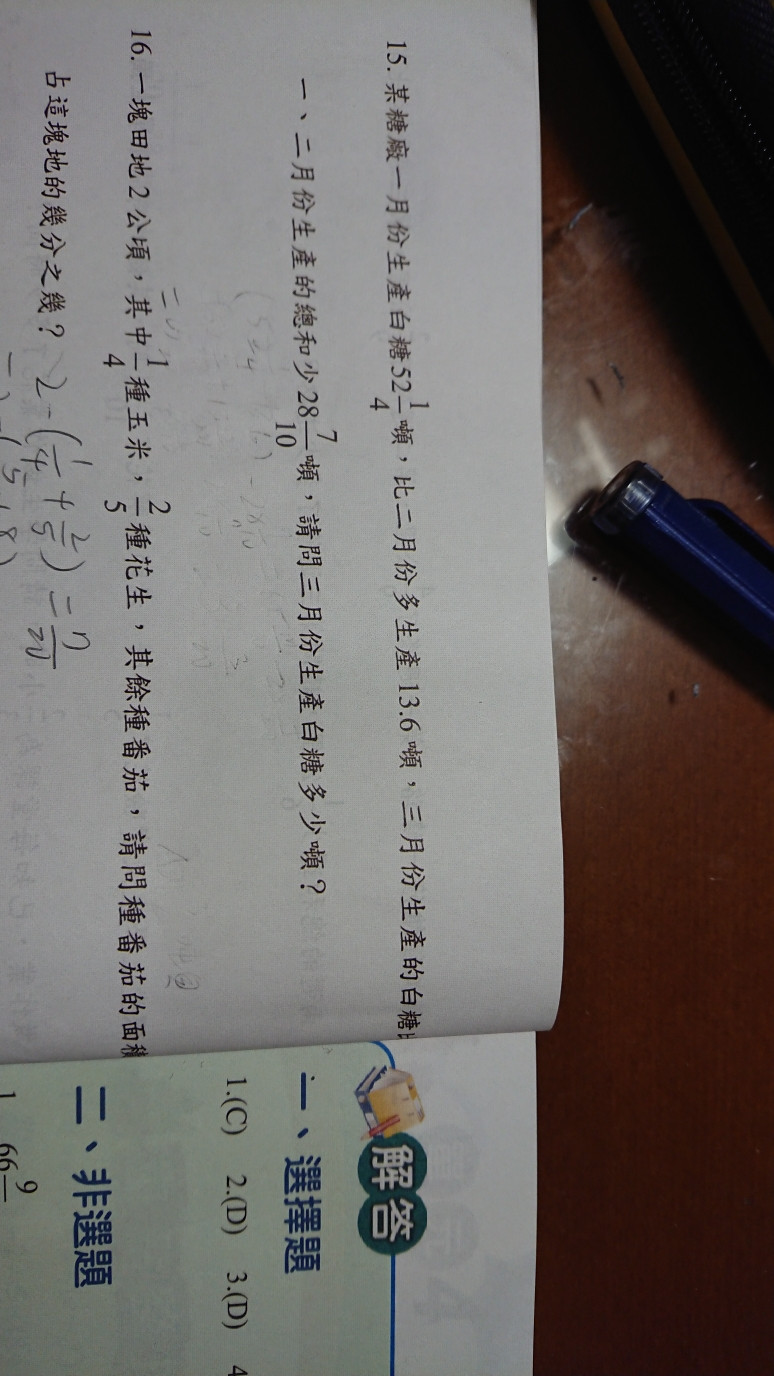 15. 某糖廠一月份生產白糖52 1/4 噸，比二月份多生產 13.6 噸，三月份生產的白糖
一、二月份生產的總和少28 7/10 噸，請問三月份生產白糖多少噸？
16. 一塊田地 2 公頃，其中 1/4 種玉米，2/5 種花生，其餘種番茄，請問種番茄的面
占這塊地的幾分之幾？
2-(1/4+2/5)=7/20
解答
一、選擇題
1.(C) 2.(D) 3.(D) 4
二、非選題
1 66 9